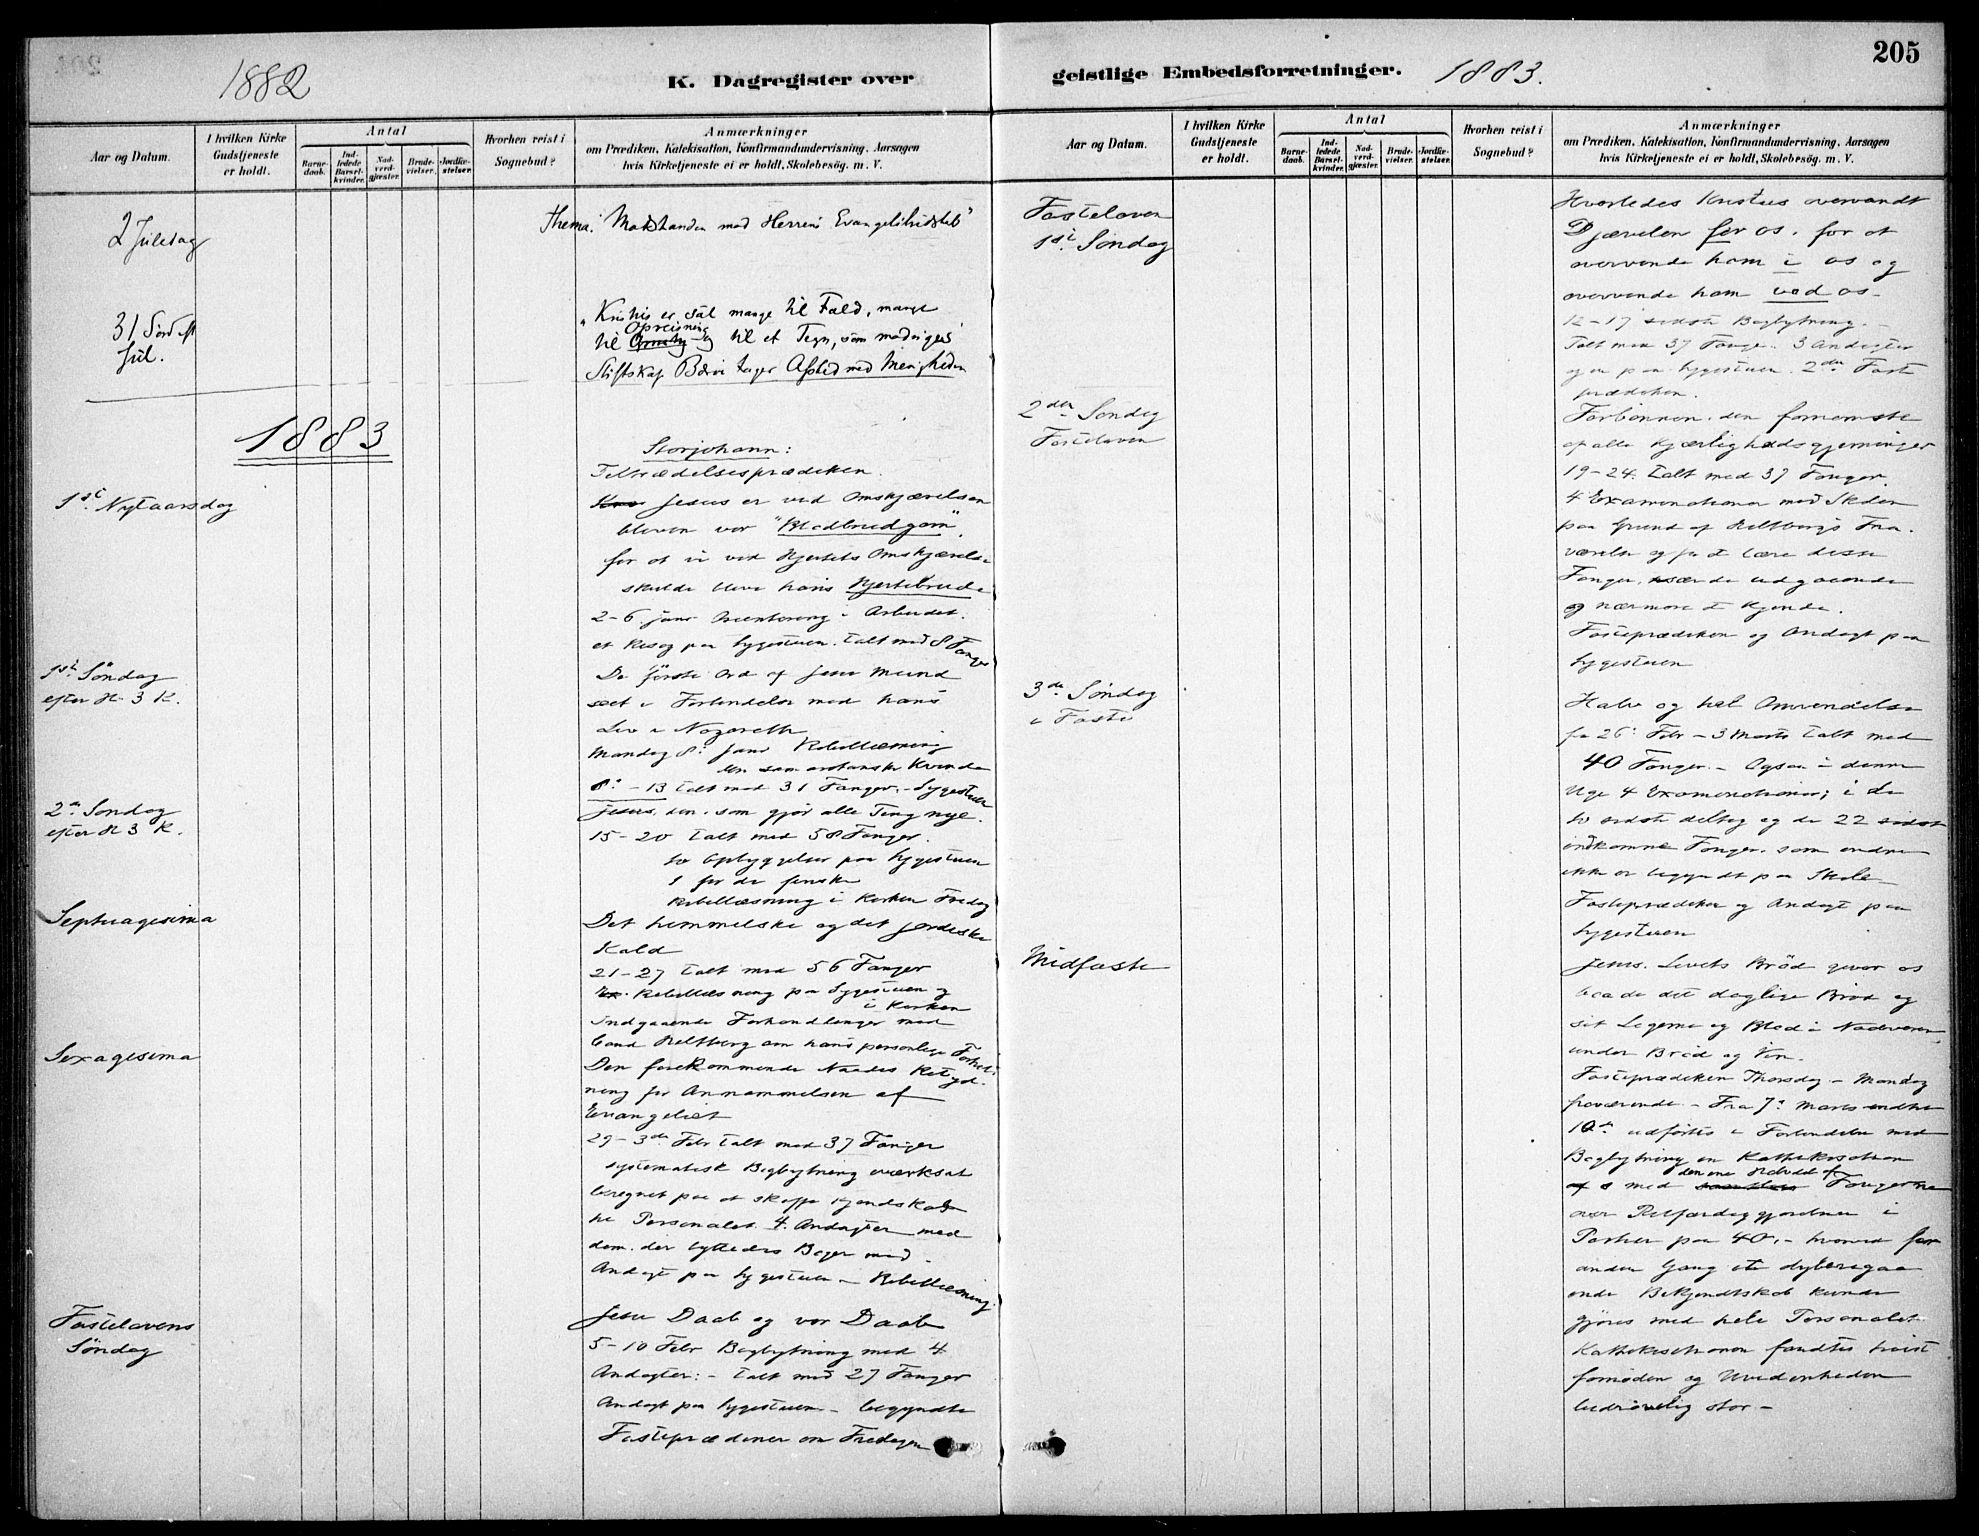 1882
K. Dagregister over
Aar og Datum.
I hvilken Kirke Gudstjeneste er holdt.
Antal
Barne-daab.
Ind-ledede Barsel-kvinder.
Nad-verd-gjæster.
Brude-vielser.
Jordfæ-stelser.
Hvorhen reist i Sognebud?
Anmærkninger
om Prædiken, Katekisation, Konfirmandundervisning, Aarsagen
hvis Kirketjeneste ei er holdt, Skolebesög. m. V.
2 Juledag
Thema: Modstanden mod Herrens
31 Sönd eft
Jul.
"Kristus er sat mange til Fald, mange
Opreisning
til og til et Tegn, som modsiges
tager Afsked med Menigheden
1883
Storjohann:
Tiltrædelsesprædiken.
1ste Nytaarsdag
Jesus er ved Omskjærelsen
bleven vor "Blodbrudgom",
for at vi ved Hjertets Omskjærelse
skulde blive hans Hjertebrud
2-6 Janr Orientering i Arbeidet.
et Besög paa Sygestuen. Talt med 8 Fanger
1ste Söndag
efter H. 3 K.
De förste Ord af Jesu Mund
seet i Forbindelse med hans
Liv i Nazareth
Mandag 8. Janr Bibellæsning
den samaritanske Kvinde
8. - 13 talt med 31 Fanger. - Sygestuen
2den Söndag
efter H 3 K.
Jesus, den, som gjör alle Ting nye.
15-20 talt med 58 Fanger.
to Opbyggelser paa Sygestuen
1 for de finske
Bibellæsning i Kirken Fredag
Septuagesima
Det himmelske og det jordiske
Kald
21-27 talt med 56 Fanger
Bibellæsning paa Sygestuen og
i Kirken
Indgaaende Forhandlinger med
Cand om hans personlige Forhold
Sexagesima
Den forekommende Naades Betyd-
ning for Annammelsen af
Evangeliet
29-3die Febr talt med 37 Fanger
systematisk Bogbytning iværksat
beregnet paa at skaffe Kjendskab
til Personalet. 4 Andagter med
dem, der byttedes Böger med
Andagt paa Sygestuen - Bibellæsning
Fastelavens
Söndag
Jesu Daab og vor Daab
5-10 Febr Bogbytning med 4
Andagter: - talt med 27 Fanger
Andagt paa Sygestuen - begyndte
Fasteprædikener om Fredagen
205
geistlige Embedsforretninger.
1883.
Aar og Datum.
I hvilken Kirke Gudstjeneste er holdt.
Antal
Barne-daab.
Ind-ledede Barsel-kvinder.
Nad-verd-gjæster.
Brude-vielser.
Jordfæ-stelser.
Hvorhen reist i Sognebud?
Anmærkninger
om Prædiken, Katekisation, Konfirmandundervisning, Aarsagen
hvis Kirketjeneste ei er holdt, Skolebesög. m. V.
Fastelaven
1ste Söndag
Hvorledes Kristus overvandt
Djævelen for os, for at
overvinde ham i os og
overvinde ham ved os.
12-17 sidste Bogbytning. -
Talt med 37 Fanger. 3 Andagter
og en paa Sygestuen. 2den Faste
prædiken.
2den Söndag
Fastelaven
Forbönnen, den fornemste
af alle Kjærlighedsgjerninger
19-24. talt med 37 Fanger.
4 Examinationer med Skolen
paa Grund af Fra-
værelse og for at lære disse
Fanger, især de udgaaende
og nærmere at kjende.
Fasteprædiken og Andagt paa
Sygestuen
3die Söndag
i Faste
Halv og hel Omvendelse
fra 26. Febr - 3 Marts talt med
40 Fanger. - Ogsaa i denne
Uge 4 Examinationer; i de
to sidste deltog og de 22 sidst
indkomne Fanger, som endnu
ikke er begyndt paa Skole
Fasteprædiken og Andagt paa
Sygestuen
Midfaste
Jesus, Livets Bröd giver os
baade det daglige Bröd og
sit Legeme og Blod i Nadveren
under Bröd og Vin.
Fasteprædiken Thorsdag - Mandag
fraværende - Fra 7. Marts
10de udförtes i Forbindelse med
Bogbytning en Kathekisation
den ene Halvdel af
med Fangerne
over Retfærdiggjörelsen i
Partier paa 40, - hvorved for
anden Gang et dyberegaa-
ende Bekjendtskab kunde
gjöres med hele Personalet.
Kathekisationen fandtes höist
fornöden og Uvidenheden
bedrövelig stor -